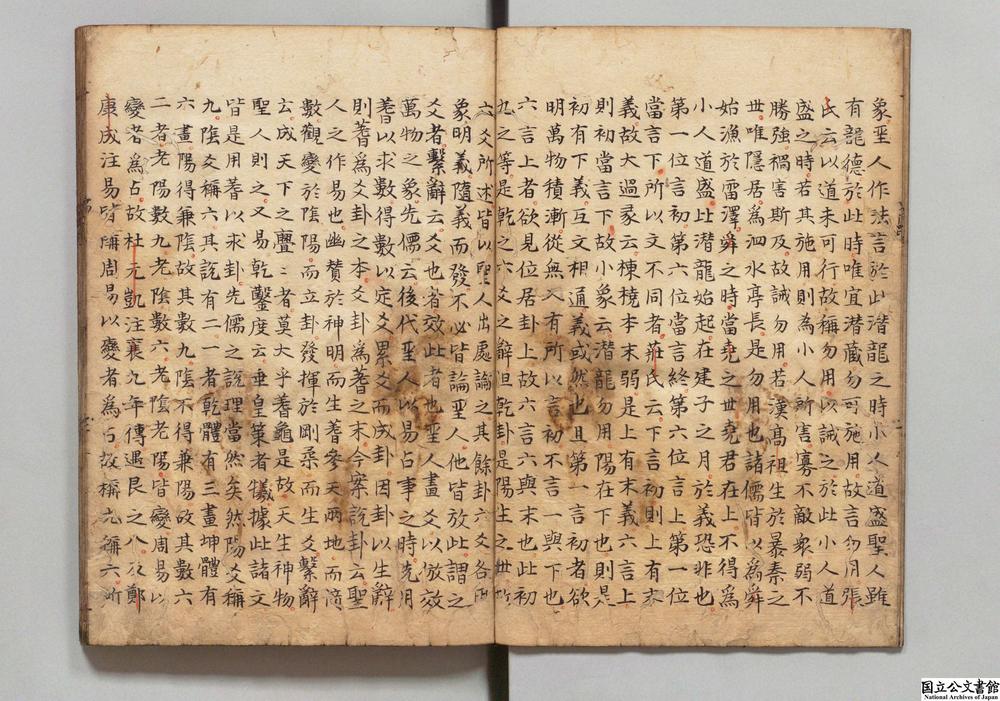 象聖人作法言於此潛龍之時小人道盛聖人雖
有龍德於此時唯宜潛藏勿可施用故言勿用張
氏云以道未可行故稱勿用以誡之於此小人道
盛之時若其施用則為小人所害寡不敵衆弱不
勝強禍害斯及故誡勿用若漢高祖生於暴秦之
世唯隱居為泗水亭長是勿用也諸儒皆以為舜
始漁於雷澤舜之時當堯之世堯君在上不得為
小人道盛此潛龍始起在建子之月於義恐非也
第一位言初第六位當言終第六位言上第一位
當言下所以文不同者莊氏云下言初則上有末
義故大過彖云棟橈本末弱是上有末義六言上
則初當言下故小象云潛龍勿用陽在下也則是
初有下義互文相通義或然也且第一言初者欲
明萬物積漸從無入有所以言初不言一與下也
六言上者欲見位居卦上故六言六與末也此初
九之等是乾之六爻之辭但乾卦是陽生之世故
六爻所述皆以聖人出處論之其餘卦六爻各因
象明義隨義而發不必皆論聖人他皆放此謂之
爻者繫辭云爻也者效此者也聖人畫爻以倣效
萬物之象先儒云後代聖人以易占事之時先用
蓍以求數得數以定爻累爻而成卦因卦以生辭
則蓍為爻卦之本爻卦為蓍之末今案說卦云聖
人之作易也幽贊於神明而生蓍參天兩地而倚
數觀變於陰陽而立卦發揮於剛柔而生爻繫辭
云成天下之亹〻者莫大乎蓍龜是故天生神物
聖人則之又易乾鑿度云垂皇策者犧據此諸文
皆是用蓍以求卦先儒之說理當然矣然陽爻稱
九陰爻稱六其說有二一者乾體有三畫坤體有
六畫陽得兼陰故其數九陰不得兼陽故其數六
二者老陽數九老陰數六老陰老陽皆變周易以
變者為占故杜元凱注襄九年傳遇艮之八及鄭
康成注易皆稱周易以變者為占故稱九稱六所
国立公文書館
National Archives of Japan